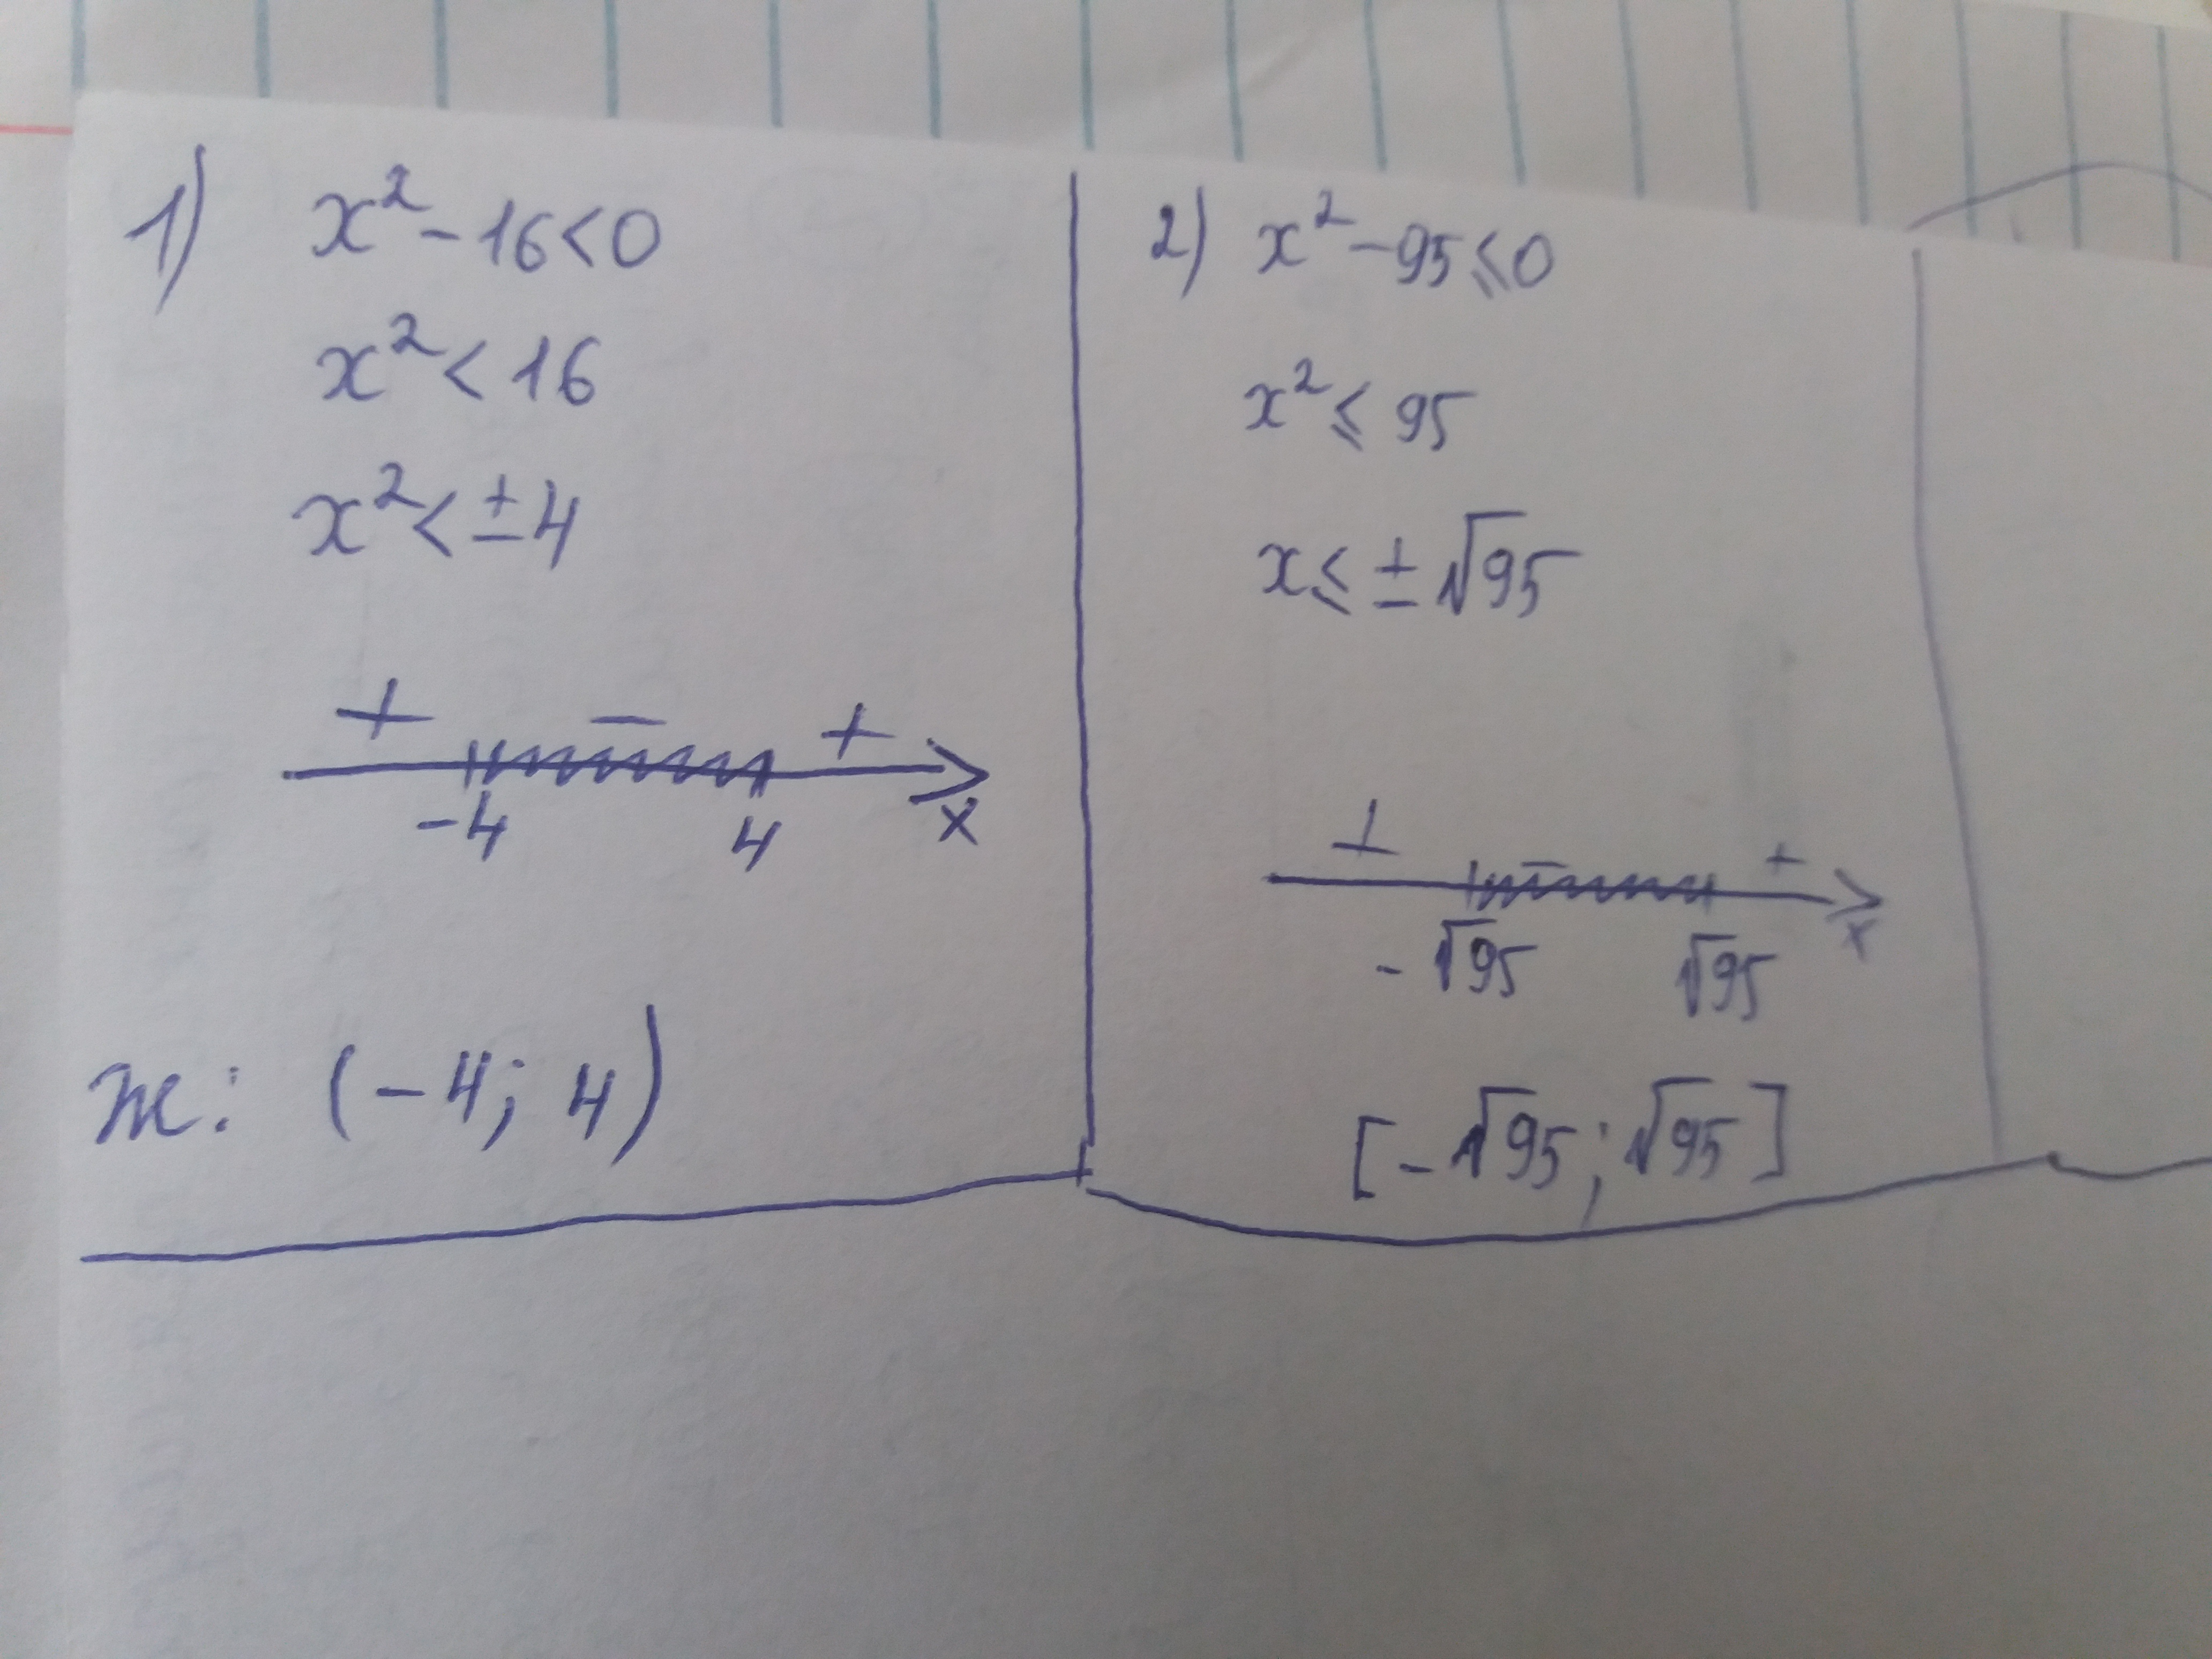 1) x² - 16 < 0
x² < 16
x² < ± 4
+ − +
-4 4 x
ж: (-4; 4)
2) x² - 95 ⩽ 0
x² ⩽ 95
x ⩽ ± √95
+ − +
- √95 √95 x
[-√95; √95]